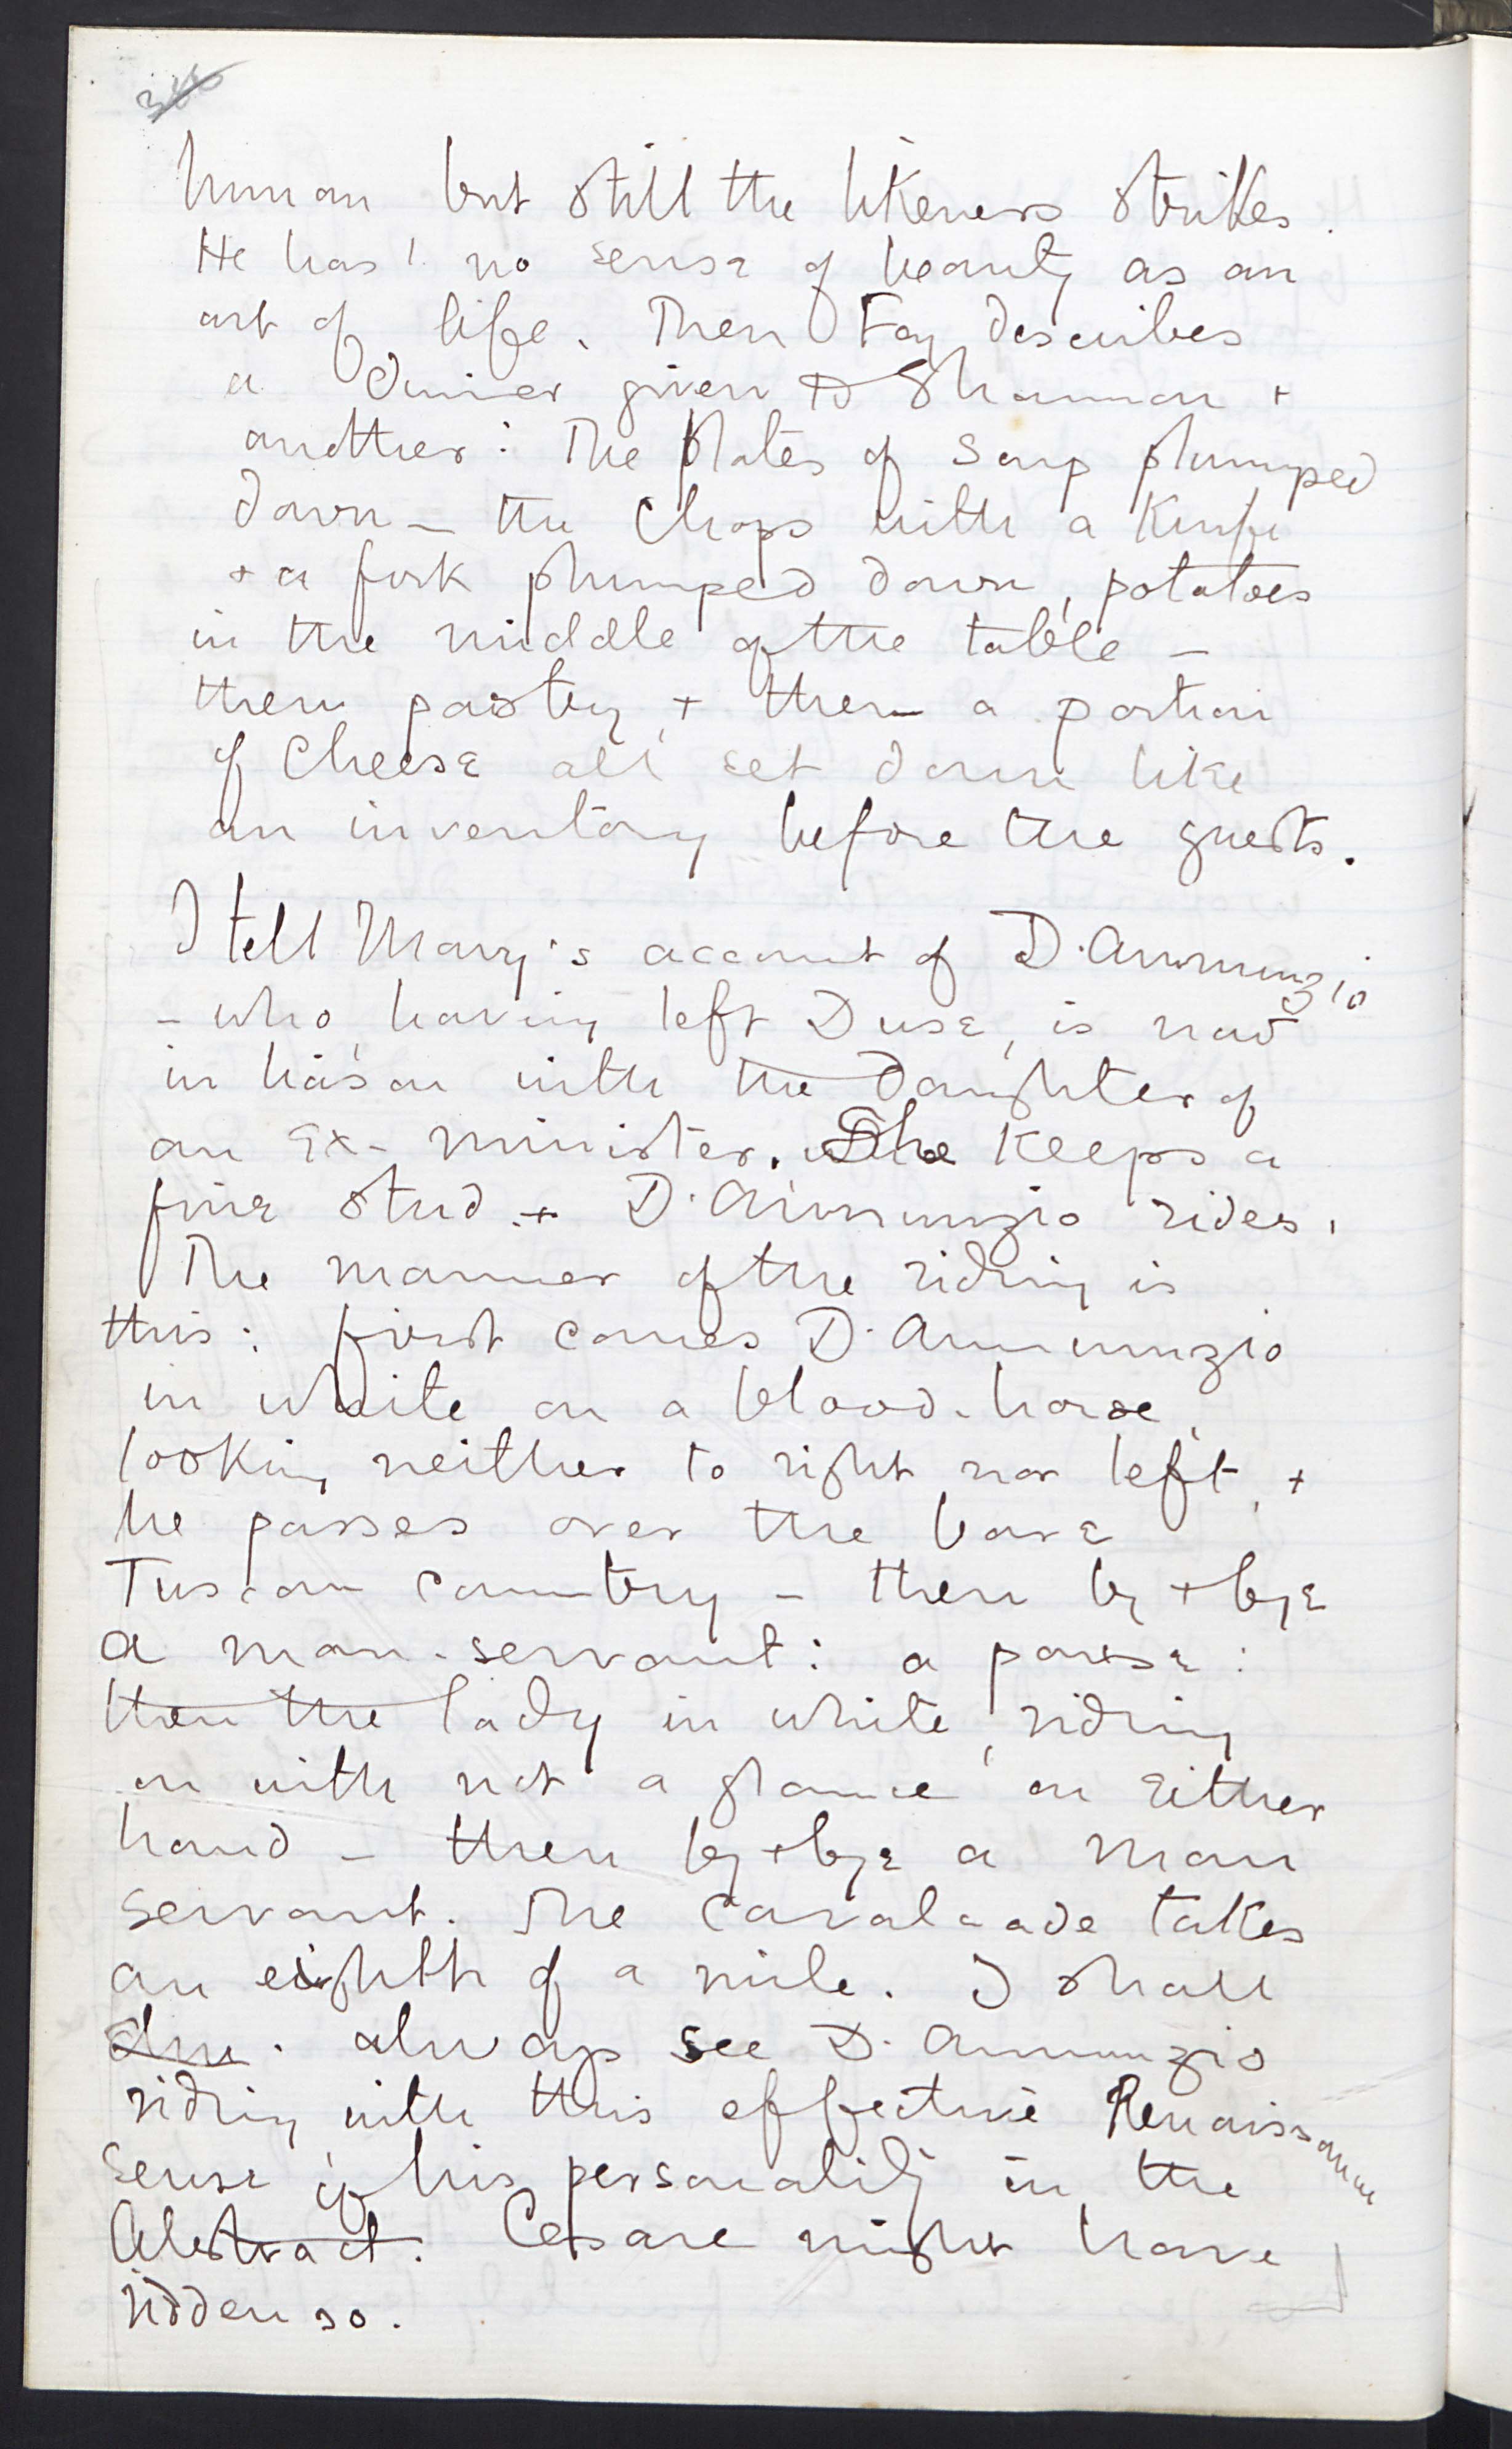 human but still the likeness strikes.
He has no sense of beauty as an
art of life. Then Fay describes
a dinner given to Shannon +
another: The plates of soup plumped
down – the chops with a knife
+ a fork plumped down, potatoes
in the middle of the table –
then pastry, + then a portion
of cheese all set down like
an inventory before the guests.
I tell Mary's account of D'Annunzio
– who, having left Duse, is now
in liason with the daughter of
an Ex-minister. She keeps a
fine stud + D'Annunzio rides.
The manner of the riding is
this: first comes D'Annunzio
in white on a blood-horse,
looking neither to right nor left, +
he passes over the bare
Tuscan country – then by + bye
a man-servant: a pause:
then the lady in white, riding
on with not a glance on either
hand – then by + bye a man
servant. The cavalcade takes
an eighth of a mile. I shall
always see D'Annunzio
riding with this effective Renaissance
sense of his personality in the
Abstract. Cesare might have
ridden so.